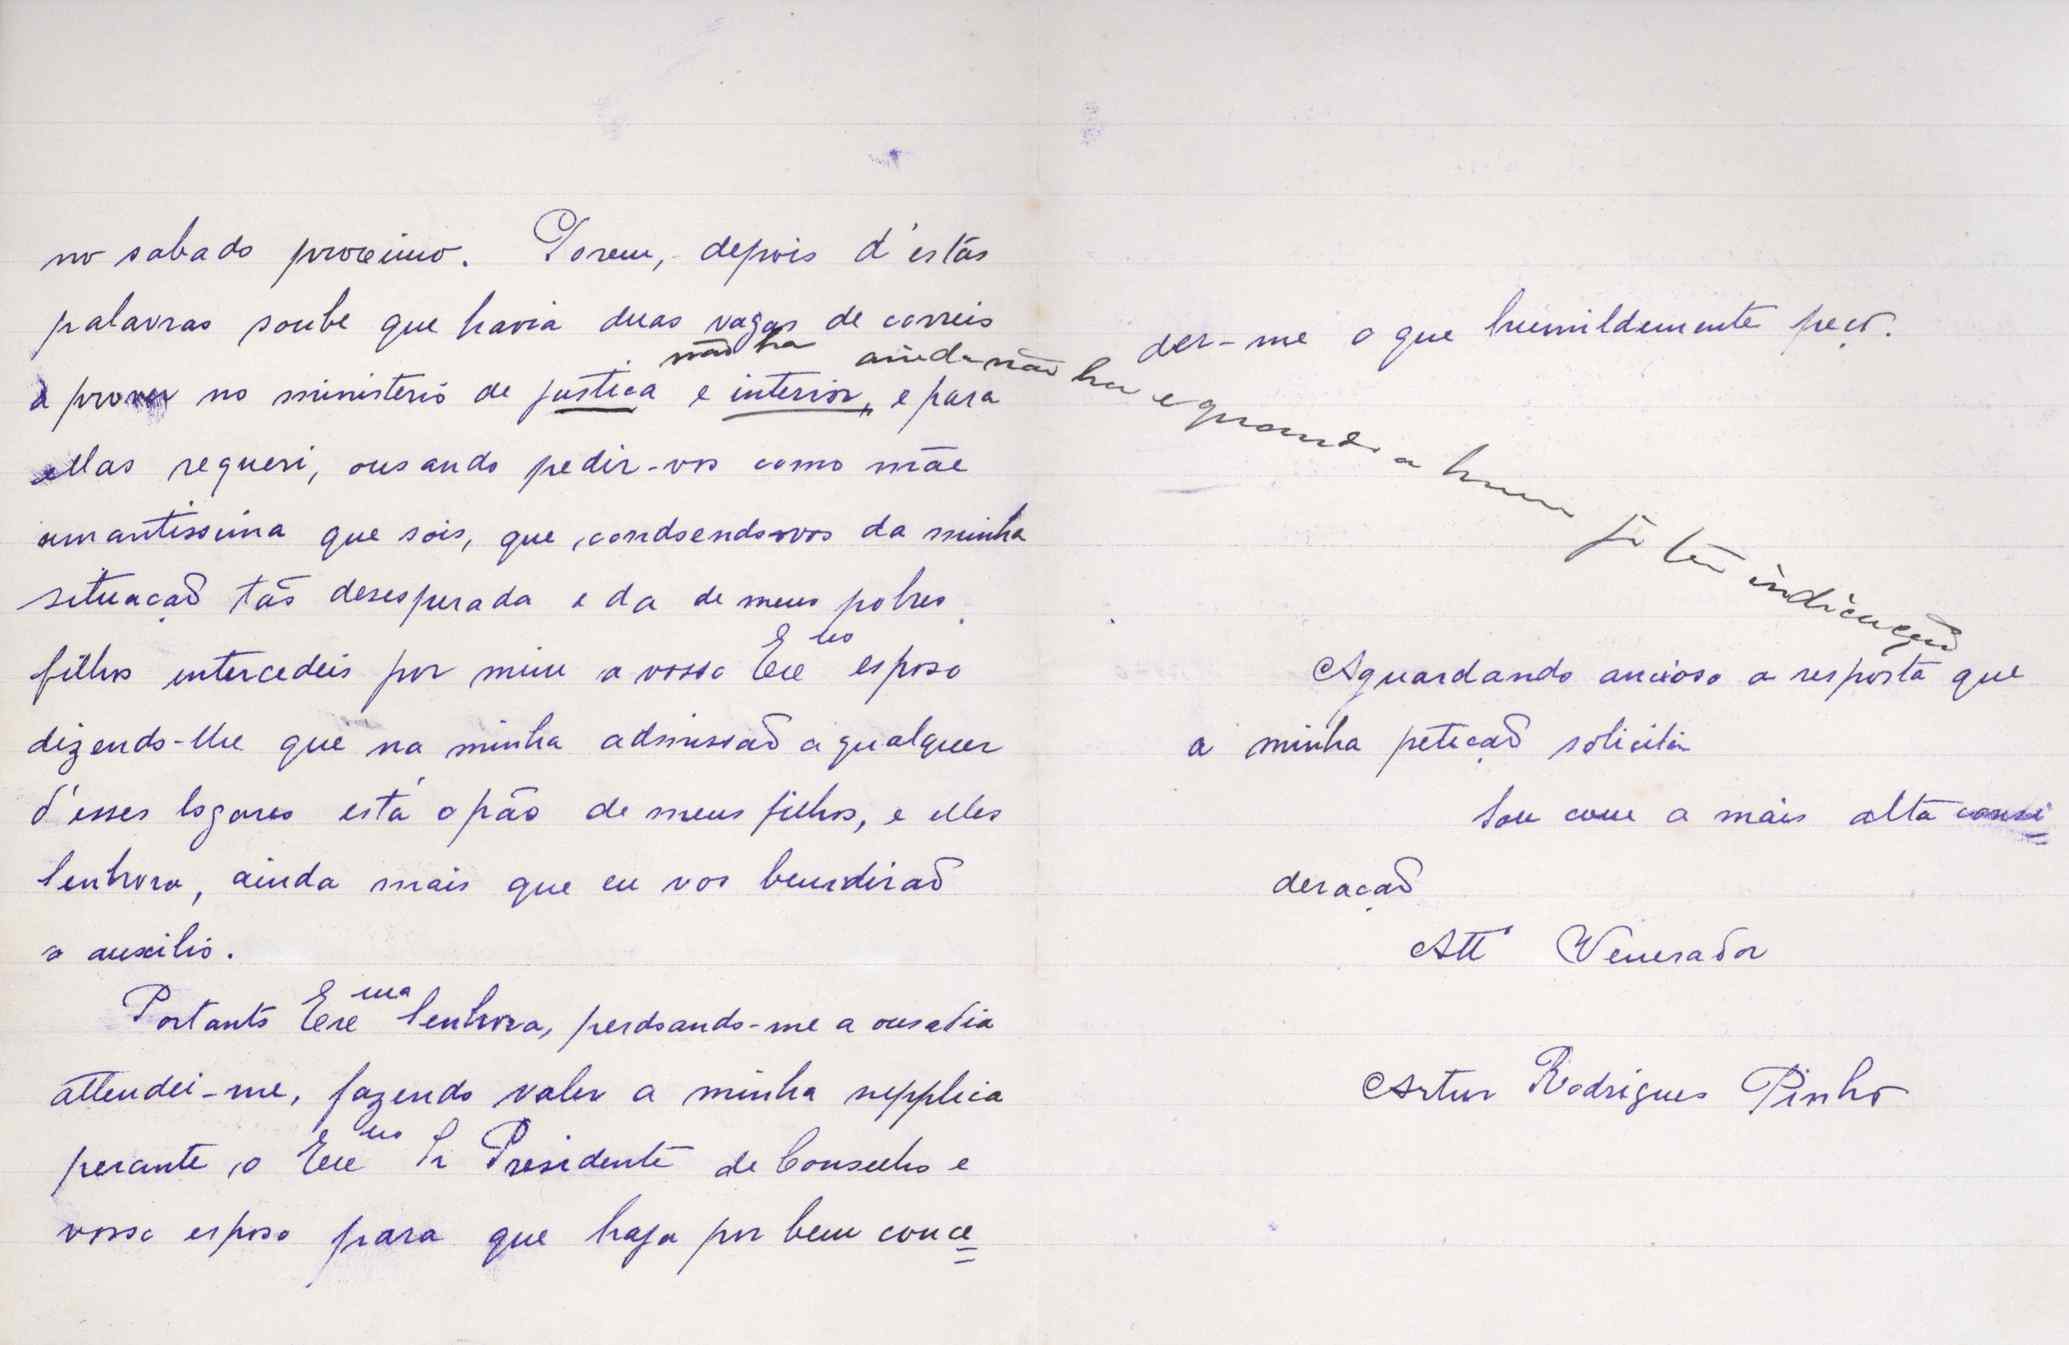 no sabado proximo. Porem, depois d'estas
palavras soube que havia duas vagas de correio
a prover no ministerio de justiça e interior, e para
não ha ainda não ha e quando a houver já tem indicação
ellas requeri, ousando pedir-vos como mãe
amantissima que sois, que, condoendo-vos da minha
situação tão desesperada e da de meus pobres
filhos intercedeis por mim a vosso Exc.mo esposo
dizendo-lhe que na minha admissão a qualquer
d'esses logares está o pão de meus filhos, e elles
Senhora, ainda mais que eu vos bemdirão
o auxilio.
Portanto Exc.ma Senhora, perdoando-me a ousadia
attendei-me, fazendo valer a minha supplica
perante o Exc.mo Sr Presidente de Conselho e
vosso esposo para que haja por bem conce=
der-me o que humildemente peço.
Aguardando ancioso a resposta que
a minha petição solicita
Sou com a mais alta consi=
deração
Att.º Venerador
Artur Rodrigues Pinho